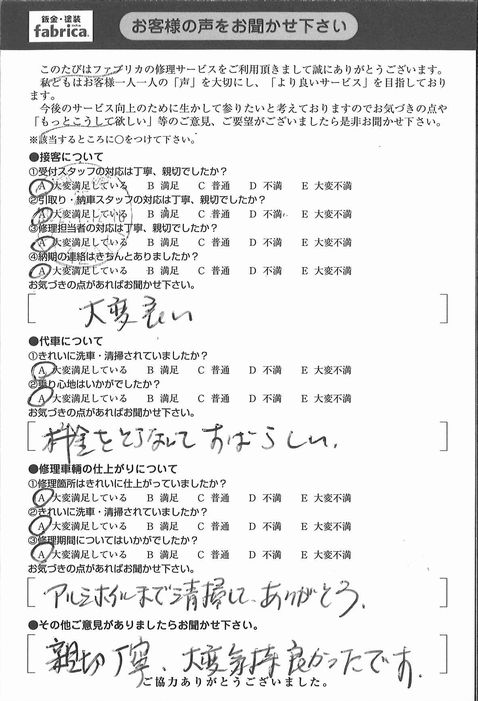 鈑金・塗装
fabrica.
お客様の声をお聞かせ下さい
このたびはファブリカの修理サービスをご利用頂きまして誠にありがとうございます。
私どもはお客様一人一人の「声」を大切にし、「より良いサービス」を目指しており
ます。
今後のサービス向上のために生かして参りたいと考えておりますのでお気づきの点や
「もっとこうして欲しい」等のご意見、ご要望がございましたら是非お聞かせ下さい。
※該当するところに〇をつけて下さい。
●接客について
①受付スタッフの対応は丁寧、親切でしたか?
A 大変満足している B 満足 C 普通 D 不満 E 大変不満
②引取り・納車スタッフの対応は丁寧、親切でしたか?
A 大変満足している B 満足 C 普通 D 不満 E 大変不満
③修理担当者の対応は丁寧、親切でしたか?
A 大変満足している B 満足 C 普通 D 不満 E 大変不満
④納期の連絡はきちんとありましたか?
A 大変満足している B 満足 C 普通 D 不満 E 大変不満
お気づきの点があればお聞かせ下さい。
大変良い
●代車について
①きれいに洗車・清掃されていましたか?
A 大変満足している B 満足 C 普通 D 不満 E 大変不満
②乗り心地はいかがでしたか?
A 大変満足している B 満足 C 普通 D 不満 E 大変不満
お気づきの点があればお聞かせ下さい。
料金をとらなくてすばらしい。
●修理車輌の仕上がりについて
①修理箇所はきれいに仕上がっていましたか?
A 大変満足している B 満足 C 普通 D 不満 E 大変不満
②きれいに洗車・清掃されていましたか?
A 大変満足している B 満足 C 普通 D 不満 E 大変不満
③修理期間についてはいかがでしたか?
A 大変満足している B 満足 C 普通 D 不満 E 大変不満
お気づきの点があればお聞かせ下さい。
アルミホイルまで清掃して、ありがとう。
●その他ご意見がありましたらお聞かせ下さい。
親切丁寧、大変気持良かったです。
ご協力ありがとうございました。